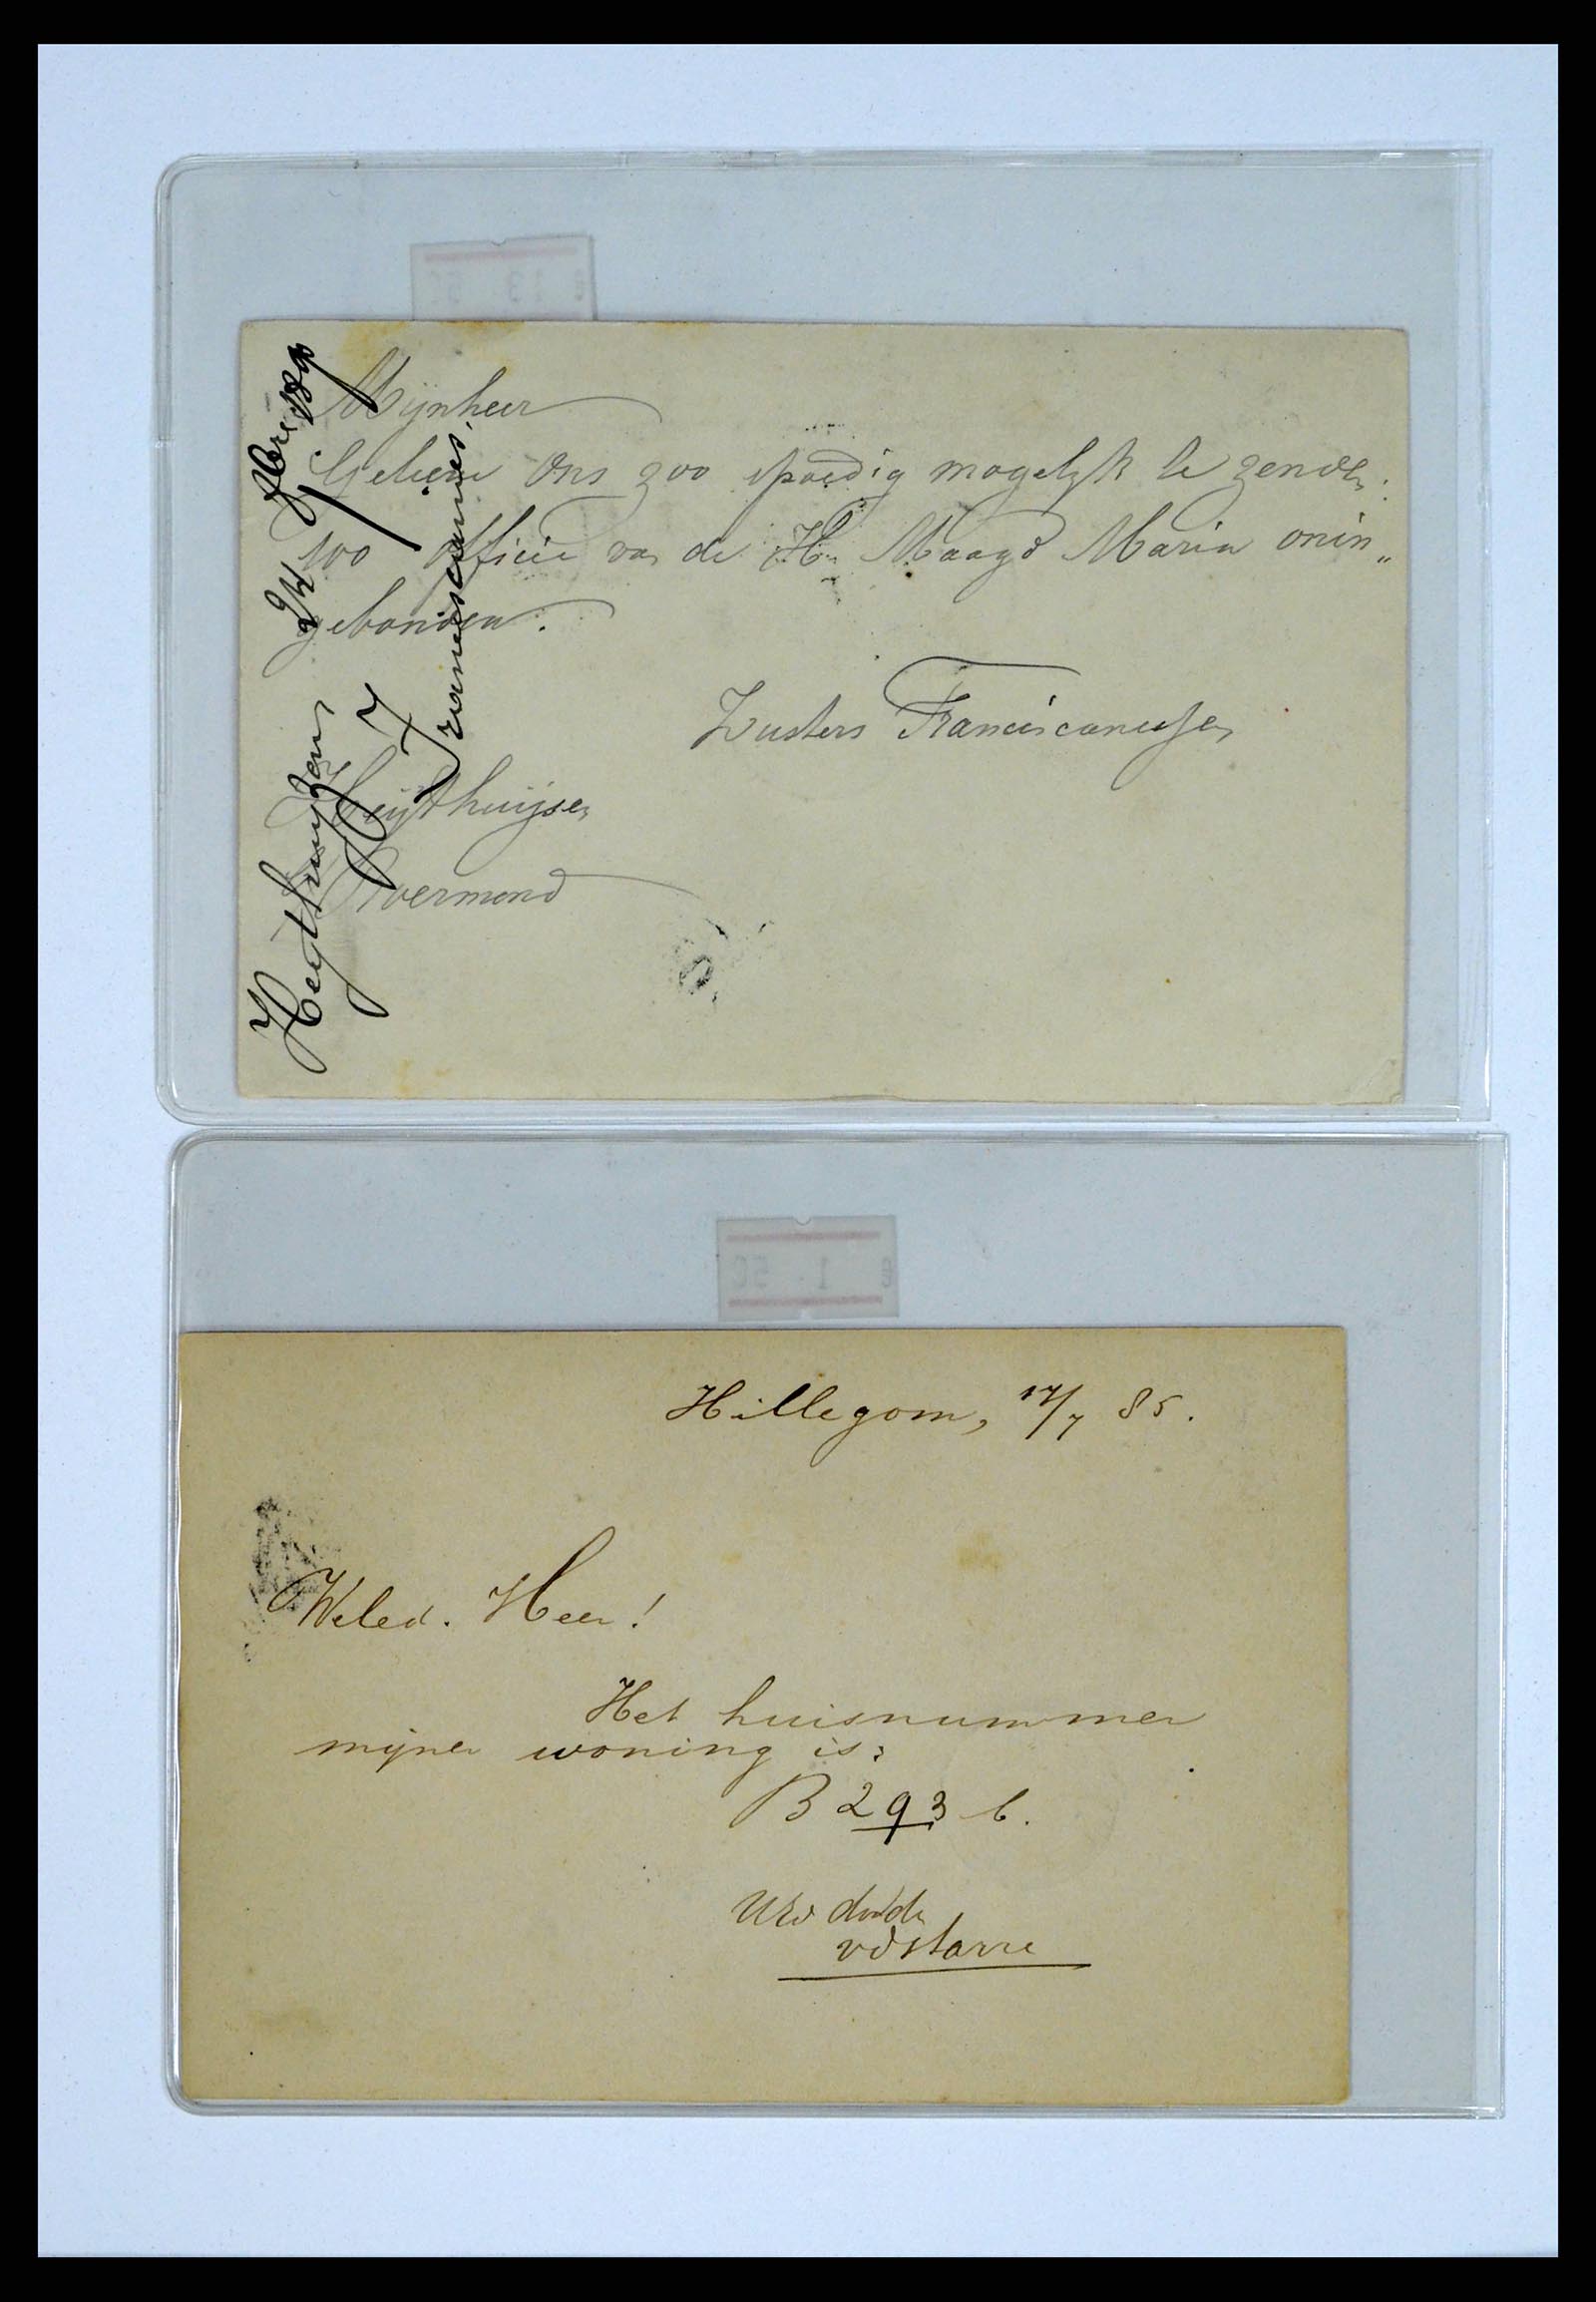 Mijnheer
Gelieve Ons zoo spoedig mogelijk te zenden
100 Officie van de H. Maagd Maria onin„
gebonden.
Zusters Franciscanessen
Heijthuijsen
Roermond
Heythuyzen
24
Franciscanes.
Hillegom, 17/7 85.
Weled. Heer!
Het huisnummer
mijner woning is:
B 293 b.
UEd
vdstarre